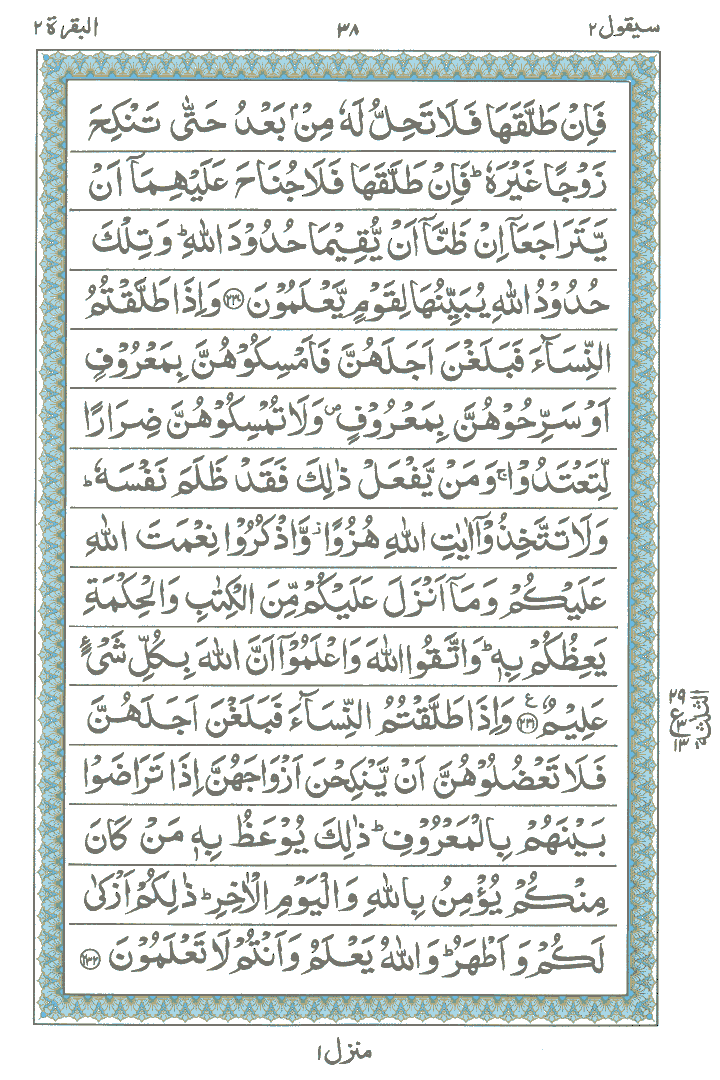 سيقول ٢ ٣٨ البقرة ٢
فَاِنْ طَلَّقَهَا فَلَا تَحِلُّ لَهٗ مِنْۢ بَعْدُ حَتّٰى تَنْكِحَ
زَوْجًا غَيْرَهٗ ؕ فَاِنْ طَلَّقَهَا فَلَا جُنَاحَ عَلَيْهِمَاۤ اَنْ
يَّتَرَاجَعَاۤ اِنْ ظَنَّاۤ اَنْ يُّقِيْمَا حُدُوْدَ اللّٰهِ ؕ وَتِلْكَ
حُدُوْدُ اللّٰهِ يُبَيِّنُهَا لِقَوْمٍ يَّعْلَمُوْنَ ﴿۲۳۰﴾ وَاِذَا طَلَّقْتُمُ
النِّسَآءَ فَبَلَغْنَ اَجَلَهُنَّ فَاَمْسِكُوْهُنَّ بِمَعْرُوْفٍ
اَوْ سَرِّحُوْهُنَّ بِمَعْرُوْفٍ ص وَلَا تُمْسِكُوْهُنَّ ضِرَارًا
لِّتَعْتَدُوْا ۚ وَمَنْ يَّفْعَلْ ذٰلِكَ فَقَدْ ظَلَمَ نَفْسَهٗ ؕ
وَلَا تَتَّخِذُوْۤا اٰيٰتِ اللّٰهِ هُزُوًا ز وَّاذْكُرُوْا نِعْمَتَ اللّٰهِ
عَلَيْكُمْ وَمَاۤ اَنْزَلَ عَلَيْكُمْ مِّنَ الْكِتٰبِ وَالْحِكْمَةِ
يَعِظُكُمْ بِهٖ ؕ وَاتَّقُوا اللّٰهَ وَاعْلَمُوْۤا اَنَّ اللّٰهَ بِكُلِّ شَيْءٍ
عَلِيْمٌ ﴿۲۳۱﴾ ع وَاِذَا طَلَّقْتُمُ النِّسَآءَ فَبَلَغْنَ اَجَلَهُنَّ
فَلَا تَعْضُلُوْهُنَّ اَنْ يَّنْكِحْنَ اَزْوَاجَهُنَّ اِذَا تَرَاضَوْا
بَيْنَهُمْ بِالْمَعْرُوْفِ ؕ ذٰلِكَ يُوْعَظُ بِهٖ مَنْ كَانَ
مِنْكُمْ يُؤْمِنُ بِاللّٰهِ وَالْيَوْمِ الْاٰخِرِ ؕ ذٰلِكُمْ اَزْكٰى
لَكُمْ وَاَطْهَرُ ؕ وَاللّٰهُ يَعْلَمُ وَاَنْتُمْ لَا تَعْلَمُوْنَ ﴿۲۳۲﴾
الثلثة
٢٩
ع ٣
١٣
منزل ١